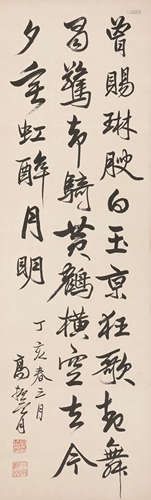 曾賜琳腴白玉京狂歌起舞
易驚却騎黃鶴橫空去今
夕垂虹醉月明
丁亥春三月
高振霄